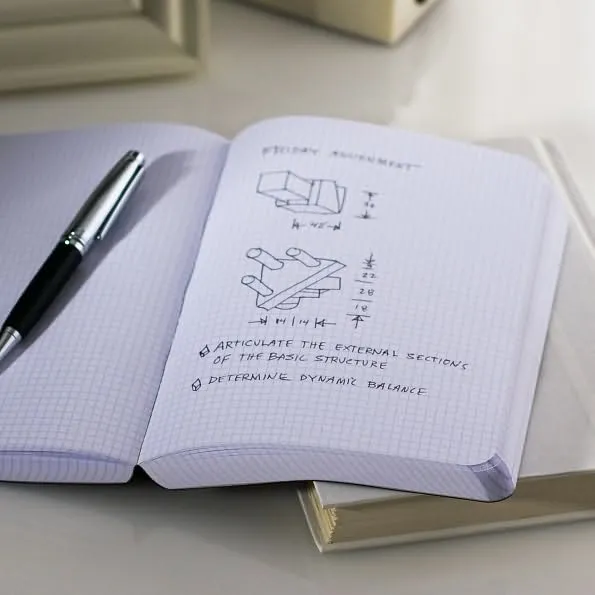 FRIDAY ASSIGNMENT
45
22
28
18
14 | 14
ARTICULATE THE EXTERNAL SECTIONS
OF THE BASIC STRUCTURE
DETERMINE DYNAMIC BALANCE